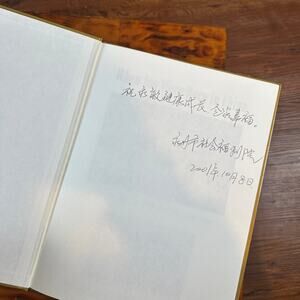 祝永敏健康成长 全家幸福。
永州市社会福利院
2001年10月8日